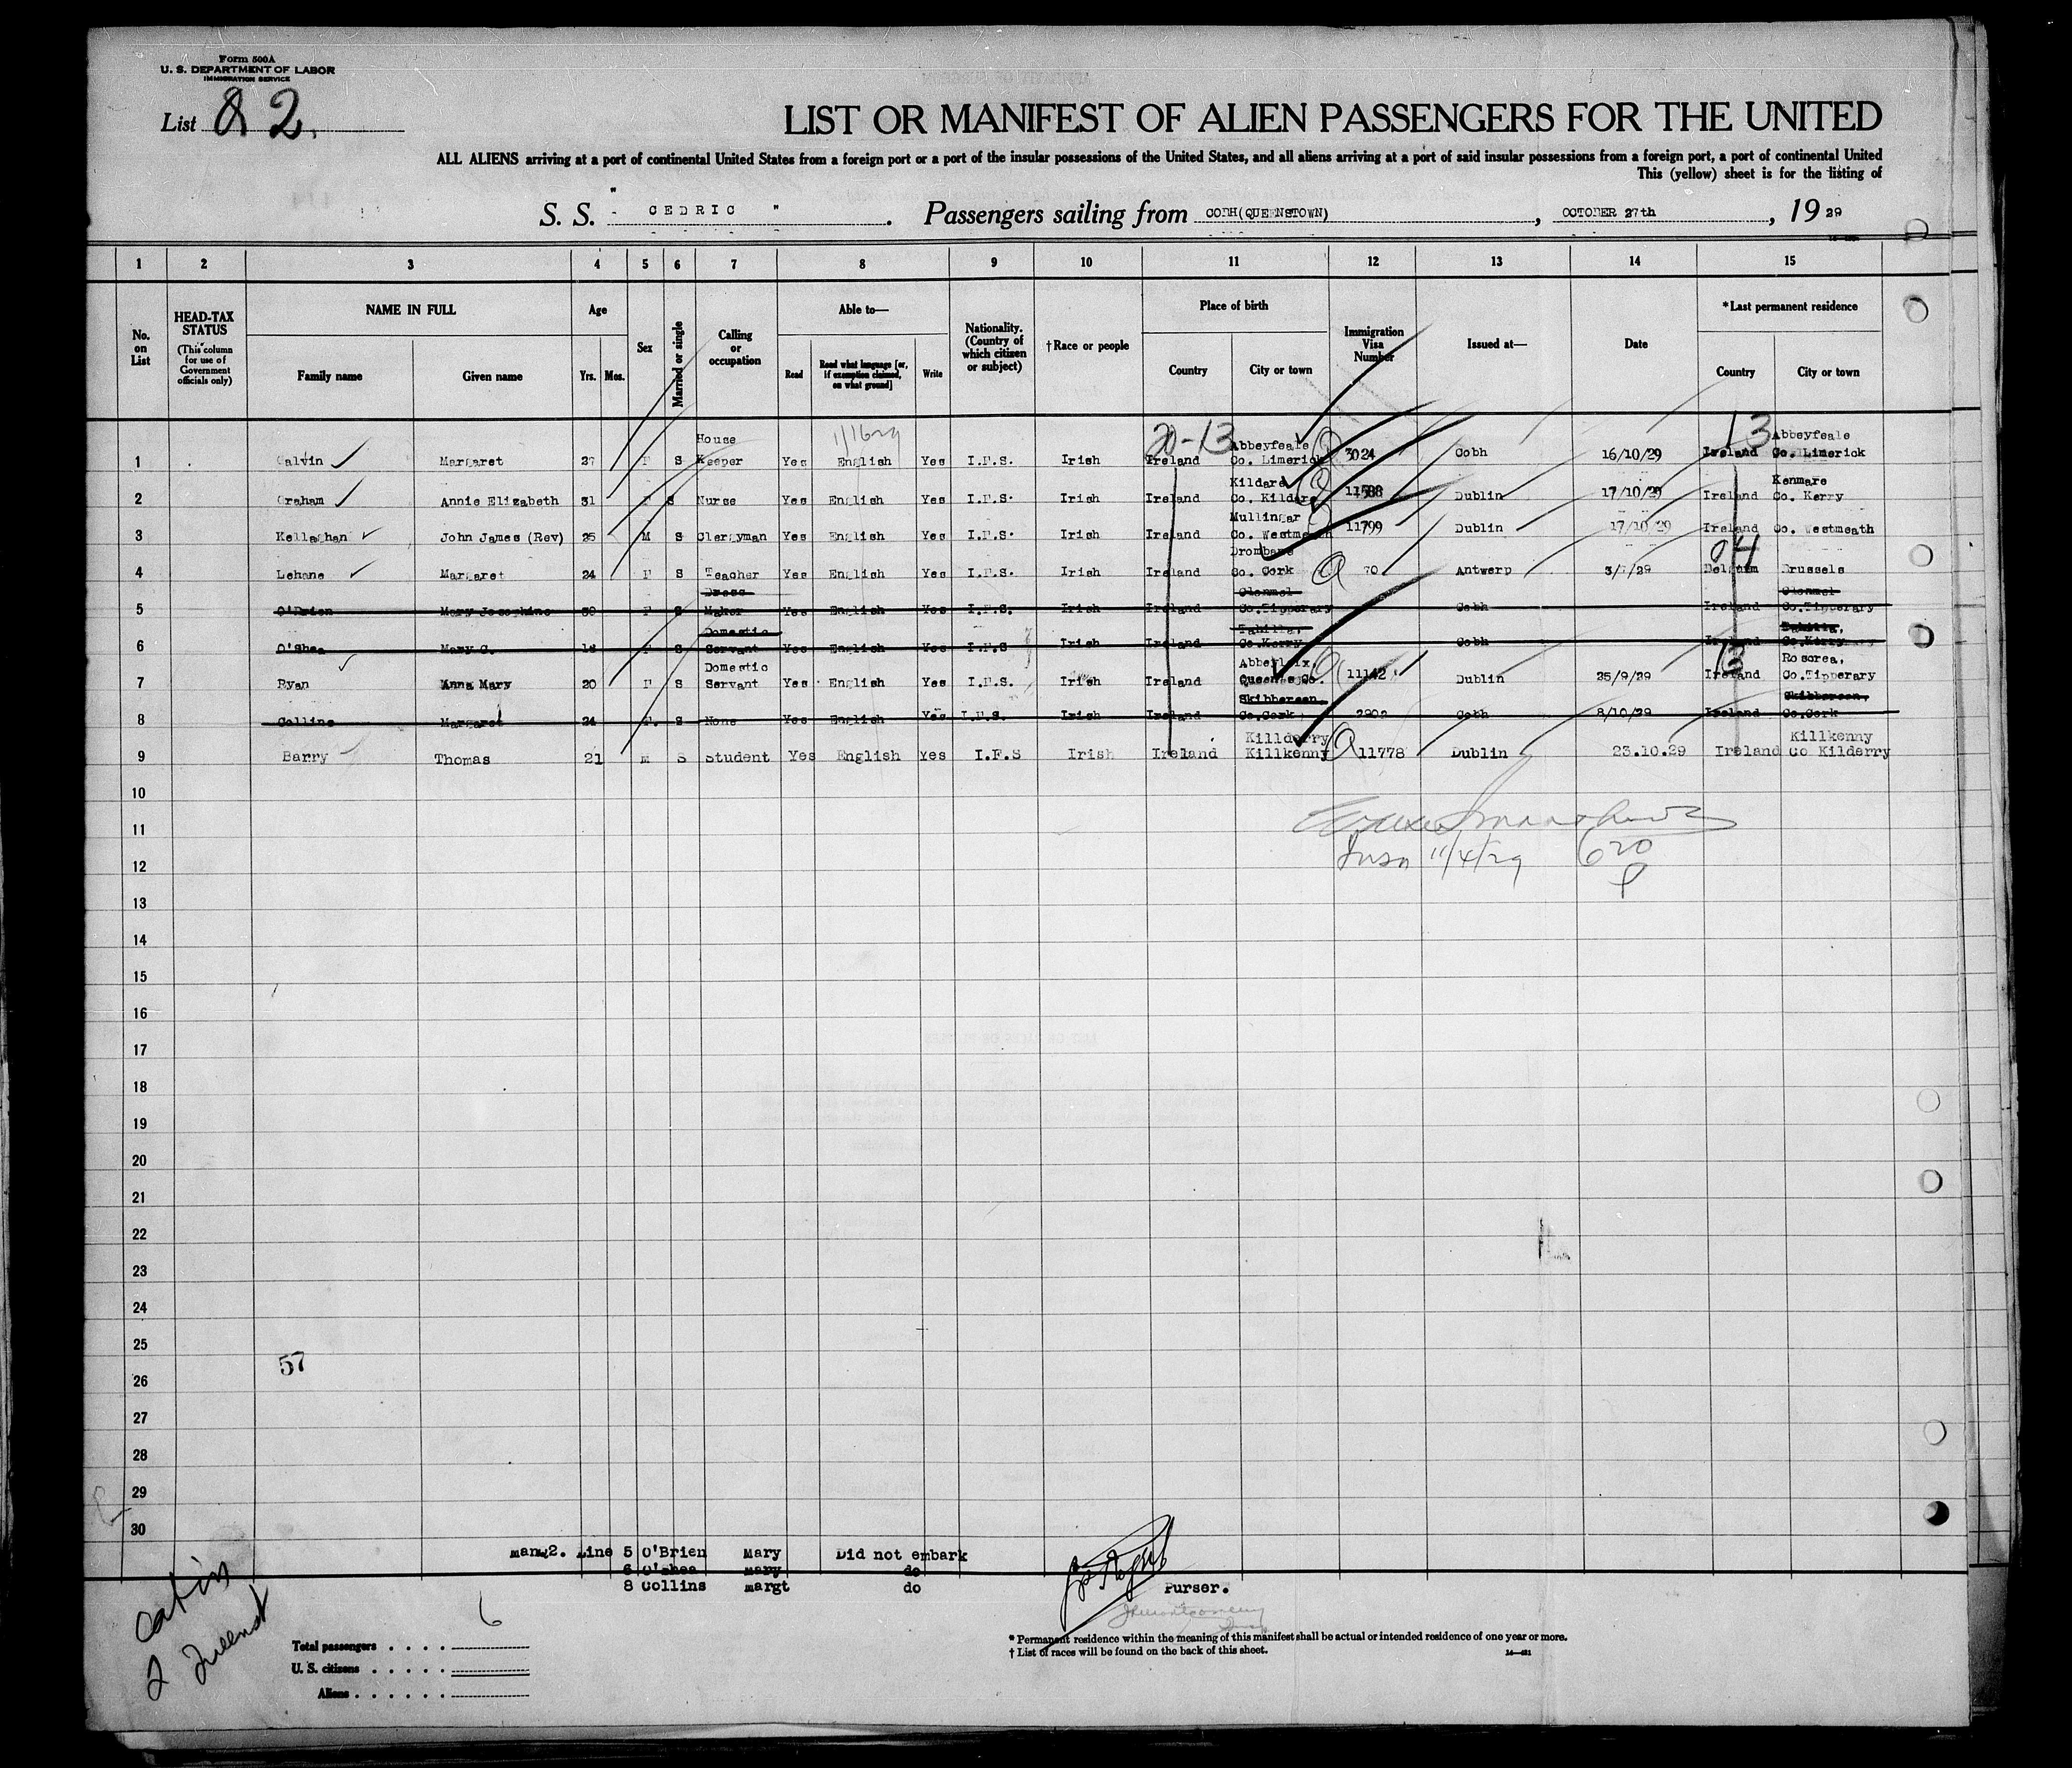 Form 500A
U. S. DEPARTMENT OF LABOR
IMMIGRATION SERVICE
List 2
LIST OR MANIFEST OF ALIEN PASSENGERS FOR THE UNITED
ALL ALIENS arriving at a port of continental United States from a foreign port or a port of the insular possessions of the United States, and all aliens arriving at a port of said insular possessions from a foreign port, a port of continental United
This (yellow) sheet is for the listing of
S. S. " CEDRIC " . Passengers sailing from COBH(QUEENSTOWN) , OCTOBER 27th , 1929
1 2 3 4 5 6 7 8 9 10 11 12 13 14 15
No. on List
HEAD-TAX STATUS
(This column for use of Government officials only)
NAME IN FULL
Family name Given name
Age
Yrs. Mos.
Sex
Married or single
Calling or occupation
Able to—
Read Read what language [or, if exemption claimed, on what ground] Write
Nationality. (Country of which citizen or subject)
†Race or people
Place of birth
Country City or town
Immigration Visa Number
Issued at—
Date
*Last permanent residence
Country City or town
20-13 13
1 Galvin Margaret 27 F S House Keeper Yes English Yes I.F.S. Irish Ireland Abbeyfeale Co. Limerick 3024 Cobh 16/10/29 Ireland Abbeyfeale Co. Limerick
2 Graham Annie Elizabeth 31 F S Nurse Yes English Yes I.F.S. Irish Ireland Kildare Co. Kildare 11588 Dublin 17/10/29 Ireland Kenmare Co. Kerry
3 Kellaghan John James (Rev) 25 M S Clergyman Yes English Yes I.F.S. Irish Ireland Mullingar Co. Westmeath 11799 Dublin 17/10/29 Ireland Co. Westmeath
04
4 Lehane Margaret 24 F S Teacher Yes English Yes I.F.S. Irish Ireland Drombane Co. Cork 70 Antwerp 3/7/29 Belgium Brussels
5 O'Brien Mary Josephine 30 F S Dress Maker Yes English Yes I.F.S. Irish Ireland Clonmel Co.Tipperary Cobh Ireland Clonmel Co.Tipperary
6 O'Shea Mary C. 18 F S Domestic Servant Yes English Yes I.F.S Irish Ireland Tahilla, Co.Kerry Cobh Ireland Tahilla, Co.Kerry
13
7 Ryan Anna Mary 20 F S Domestic Servant Yes English Yes I.F.S. Irish Ireland Abbeyleix, Queens Co. 11142 Dublin 25/9/29 Ireland Roscrea, Co.Tipperary
8 Collins Margaret 24 F. S None Yes English Yes I.F.S. Irish Ireland Skibbereen, Co.Cork 2902 Cobh 8/10/29 Ireland Skibbereen, Co.Cork
9 Barry Thomas 21 M S Student Yes English Yes I.F.S Irish Ireland Killderry Killkenny 11778 Dublin 23.10.29 Ireland Killkenny Co Kilderry
10
11
12 11/4/29 620
13
14
15
16
17
18
19
20
21
22
23
24
25
57
26
27
28
29
30
man.2. Line 5 O'Brien Mary Did not embark
6 O'Shea Mary do
8 Collins margt do
Purser.
cabin
2 Queenst
6
Total passengers
U. S. citizens
Aliens
* Permanent residence within the meaning of this manifest shall be actual or intended residence of one year or more.
† List of races will be found on the back of this sheet.